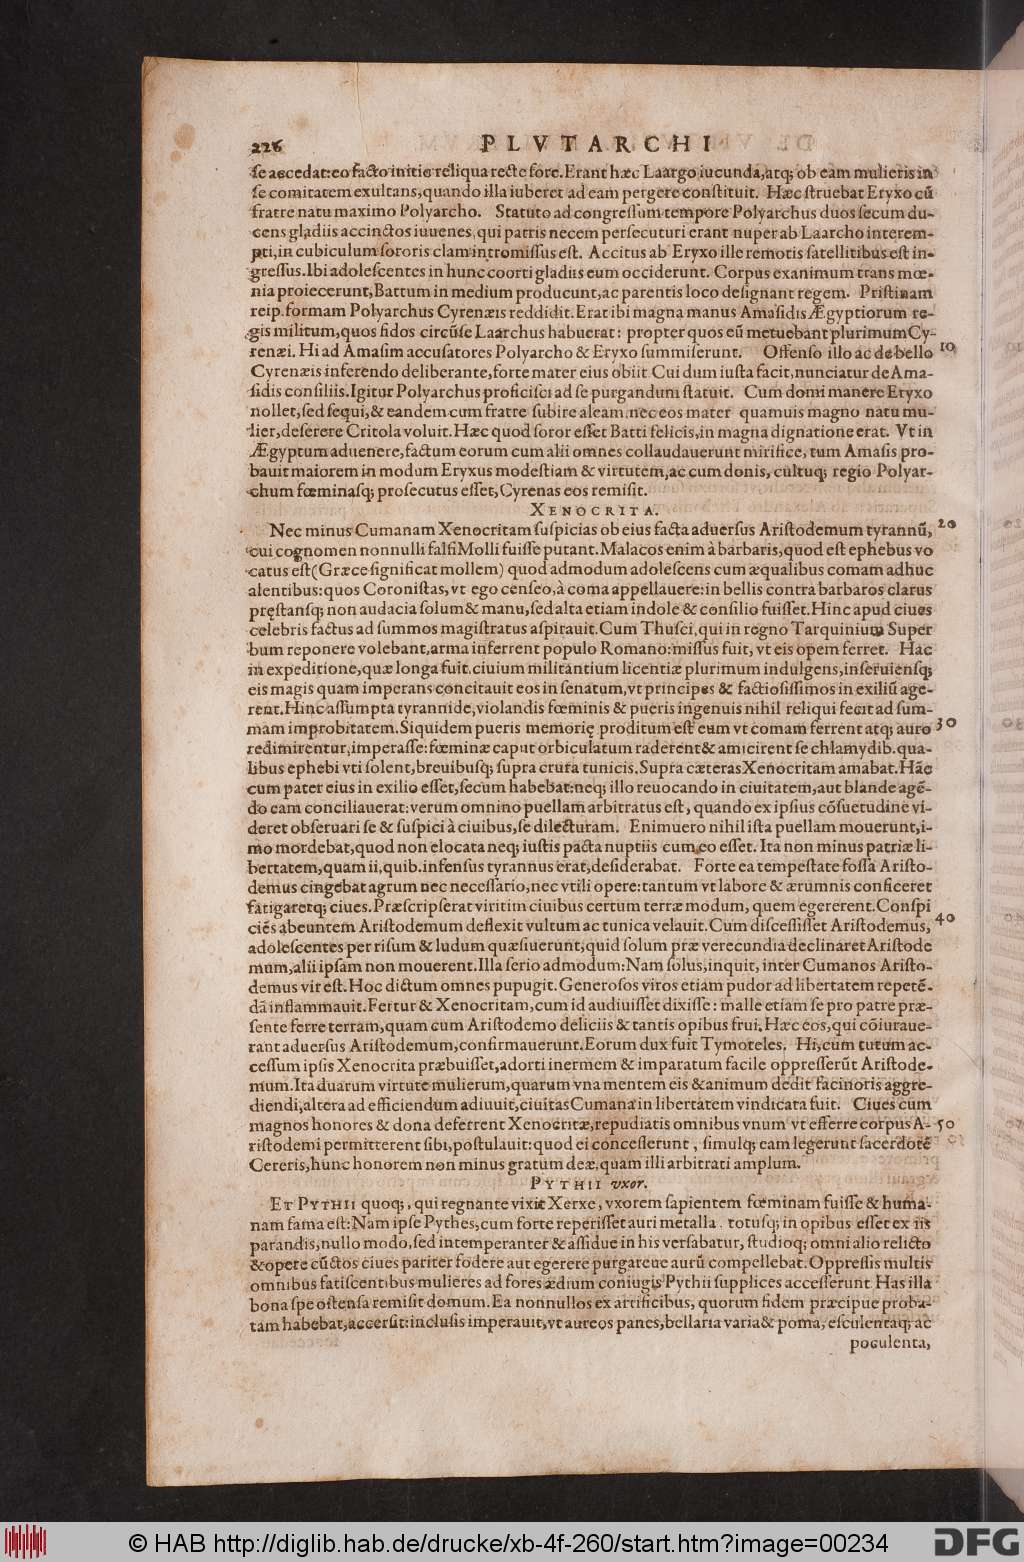 226 PLVTARCHI
se accedat: eo facto initio reliqua recte fore. Erant hæc Laargo iucunda, atq; ob eam mulieris in
se comitatem exultans, quando illa iuberet ad eam pergere constituit. Hæc struebat Eryxo cũ
fratre natu maximo Polyarcho. Statuto ad congressum tempore Polyarchus duos secum du-
cens gladiis accinctos iuuenes, qui patris necem persecuturi erant nuper ab Laarcho interem-
pti, in cubiculum sororis clam intromissus est. Accitus ab Eryxo ille remotis satellitibus est in-
gressus. Ibi adolescentes in hunc coorti gladiis eum occiderunt. Corpus exanimum trans mœ-
nia proiecerunt, Battum in medium producunt, ac parentis loco designant regem. Pristinam
reip. formam Polyarchus Cyrenæis reddidit. Erat ibi magna manus Amasidis Ægyptiorum re-
gis militum, quos fidos circũse Laarchus habuerat: propter quos eũ metuebant plurimum Cy-
renæi. Hi ad Amasim accusatores Polyarcho & Eryxo summiserunt. Offenso illo ac de bello 10
Cyrenæis inferendo deliberante, forte mater eius obiit. Cui dum iusta facit, nunciatur de Ama-
sidis consiliis. Igitur Polyarchus proficisci ad se purgandum statuit. Cum domi manere Eryxo
nollet, sed sequi, & eandem cum fratre subire aleam, nec eos mater quamuis magno natu mu-
lier, deserere Critola voluit. Hæc quod soror esset Batti felicis, in magna dignatione erat. Vt in
Ægyptum aduenere, factum eorum cum alii omnes collaudauerunt mirifice, tum Amasis pro-
bauit maiorem in modum Eryxus modestiam & virtutem, ac cum donis, cultuq; regio Polyar-
chum fœminasq; prosecutus esset, Cyrenas eos remisit.
XENOCRITA.
Nec minus Cumanam Xenocritam suspicias ob eius facta aduersus Aristodemum tyrannũ, 20
cui cognomen nonnulli falsi Molli fuisse putant. Malacos enim à barbaris, quod est ephebus vo
catus est (Græce significat mollem) quod admodum adolescens cum æqualibus comam adhuc
alentibus: quos Coronistas, vt ego censeo, à coma appellauere: in bellis contra barbaros clarus
pręstansq; non audacia solum & manu, sed alta etiam indole & consilio fuisset. Hinc apud ciues
celebris factus ad summos magistratus aspirauit. Cum Thusci, qui in regno Tarquinium Super
bum reponere volebant, arma inferrent populo Romano: missus fuit, vt eis opem ferret. Hac
in expeditione, quæ longa fuit, ciuium militantium licentiæ plurimum indulgens, inseruiensq;
eis magis quam imperans concitauit eos in senatum, vt principes & factiosissimos in exiliũ age-
rent. Hinc assumpta tyrannide, violandis fœminis & pueris ingenuis nihil reliqui fecit ad sum-
mam improbitatem. Siquidem pueris memorię proditum est eum vt comam ferrent atq; auro 30
redimirentur, imperasse: fœminæ caput orbiculatum raderent & amicirent se chlamydib. qua-
libus ephebi vti solent, breuibusq; supra crura tunicis. Supra cæteras Xenocritam amabat. Hãc
cum pater eius in exilio esset, secum habebat: neq; illo reuocando in ciuitatem, aut blande agẽ-
do eam conciliauerat: verum omnino puellam arbitratus est, quando ex ipsius cõsuetudine vi-
deret obseruari se & suspici à ciuibus, se dilecturam. Enimuero nihil ista puellam mouerunt, i-
mo mordebat, quod non elocata neq; iustis pacta nuptiis cum eo esset. Ita non minus patriæ li-
bertatem, quam ii, quib. infensus tyrannus erat, desiderabat. Forte ea tempestate fossa Aristo-
demus cingebat agrum nec necessario, nec vtili opere: tantum vt labore & ærumnis conficeret
fatigaretq; ciues. Præscripserat viritim ciuibus certum terræ modum, quem egererent. Conspi
ciẽs abeuntem Aristodemum deflexit vultum ac tunica velauit. Cum discessisset Aristodemus, 40
adolescentes per risum & ludum quæsiuerunt, quid solum præ verecundia declinaret Aristode
mum, alii ipsam non mouerent. Illa serio admodum: Nam solus, inquit, inter Cumanos Aristo-
demus vir est. Hoc dictum omnes pupugit. Generosos viros etiam pudor ad libertatem repetẽ-
dã inflammauit. Fertur & Xenocritam, cum id audiuisset dixisse: malle etiam se pro patre præ-
sente ferre terram, quam cum Aristodemo deliciis & tantis opibus frui. Hæc eos, qui cõiuraue-
rant aduersus Aristodemum, confirmauerunt. Eorum dux fuit Tymoteles. Hi, cum tutum ac-
cessum ipsis Xenocrita præbuisset, adorti inermem & imparatum facile oppresserũt Aristode-
mum. Ita duarum virtute mulierum, quarum vna mentem eis & animum dedit facinoris aggre-
diendi, altera ad efficiendum adiuuit, ciuitas Cumana in libertatem vindicata fuit. Ciues cum
magnos honores & dona deferrent Xenocritæ, repudiatis omnibus vnum vt efferre corpus A- 50
ristodemi permitterent sibi, postulauit: quod ei concesserunt, simulq; eam legerunt sacerdotẽ
Cereris, hunc honorem non minus gratum deæ, quam illi arbitrati amplum.
PYTHII vxor.
ET PYTHII quoq;, qui regnante vixit Xerxe, vxorem sapientem fœminam fuisse & huma-
nam fama est: Nam ipse Pythes, cum forte reperisset auri metalla, totusq; in opibus esset ex iis
parandis, nullo modo, sed intemperanter & assidue in his versabatur, studioq; omni alio relicto
& opere cũctos ciues pariter fodere aut egerere purgareue aurũ compellebat. Oppressis multis
omnibus fatiscentibus mulieres ad fores ædium coniugis Pythii supplices accesserunt. Has illa
bona spe ostensa remisit domum. Ea nonnullos ex artificibus, quorum fidem præcipue proba-
tam habebat, accersit: inclusis imperauit, vt aureos panes, bellaria varia & poma, esculentaq; ac
poculenta,
© HAB http://diglib.hab.de/drucke/xb-4f-260/start.htm?image=00234 DFG